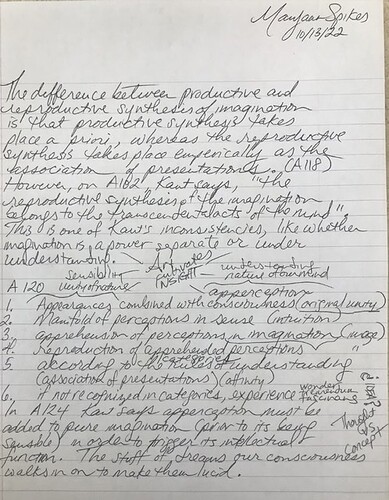 Maryann Spikes
10/13/22
The difference between productive and
reproductive synthesis of imagination
is that productive synthesis takes
place a priori, whereas the reproductive
synthesis takes place empirically as the
association of presentations. (A118)
However, on A102 Kant says, "the
reproductive synthesis of the imagination
belongs to the transcendental acts of the mind".
This is one of Kant's inconsistencies, like whether
imagination is a power separate or under
understanding.
sensibility understanding
unity of nature nature of own mind
A 120 apperception
1. Appearances combined with consciousness (original unity)
2. Manifold of perceptions in sense (intuition)
3. apprehension of perceptions in imagination (image)
4. Reproduction of apprehended perceptions "
categories
5. according to the rules of understanding
(association of presentations) (affinity)
6. if not recognized in categories, experience wonder
In A124 Kant says apperception must be
added to pure imagination (prior to its being
sensible) in order to trigger its intellectual
function. The stuff of dreams our consciousness
walks in on to make them lucid.
Thought
vs
concept